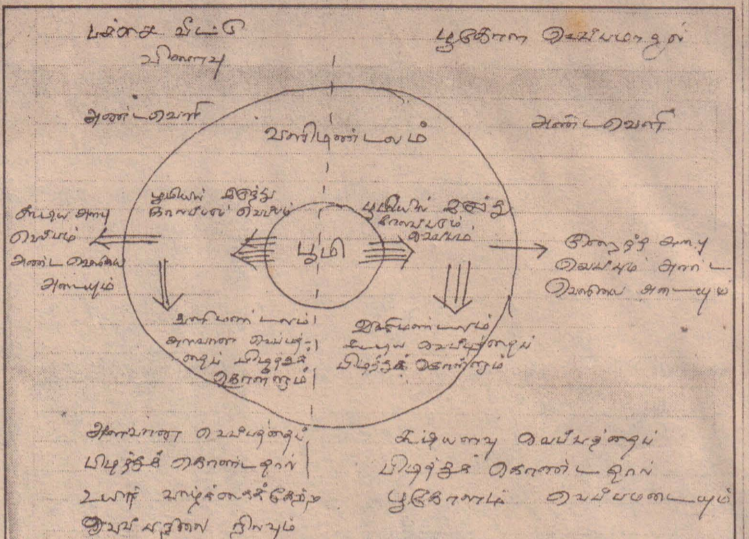 பச்சை வீட்டு
விளைவு
பூகோள வெப்பமாதல்
அண்டவெளி
வளிமண்டலம்
அண்டவெளி
பூமியில் இருந்து
காலப்படும் வெப்பம்
பூமியில் இருந்து
காலப்படும்
வெப்பம்
பூமி
கூடிய அளவு
வெப்பம்
அண்ட வெளியை
அடையும்
குறைந்த அளவு
வெப்பம் அண்ட
வெளியை அடையும்
வளிமண்டலம்
அளவான வெப்பத்-
தைப் பிடித்துக்
கொள்ளும்
வளிமண்டலம்
கூடிய வெப்பத்தைப்
பிடித்துக் கொள்ளும்
அளவான வெப்பத்தைப்
பிடித்துக் கொண்டதால்
உயிர் வாழ்க்கைக்கேற்ற
வெப்பநிலை நிலவும்
கூடியளவு வெப்பத்தைப்
பிடித்துக் கொண்டதால்
பூகோளம் வெப்பமடையும்